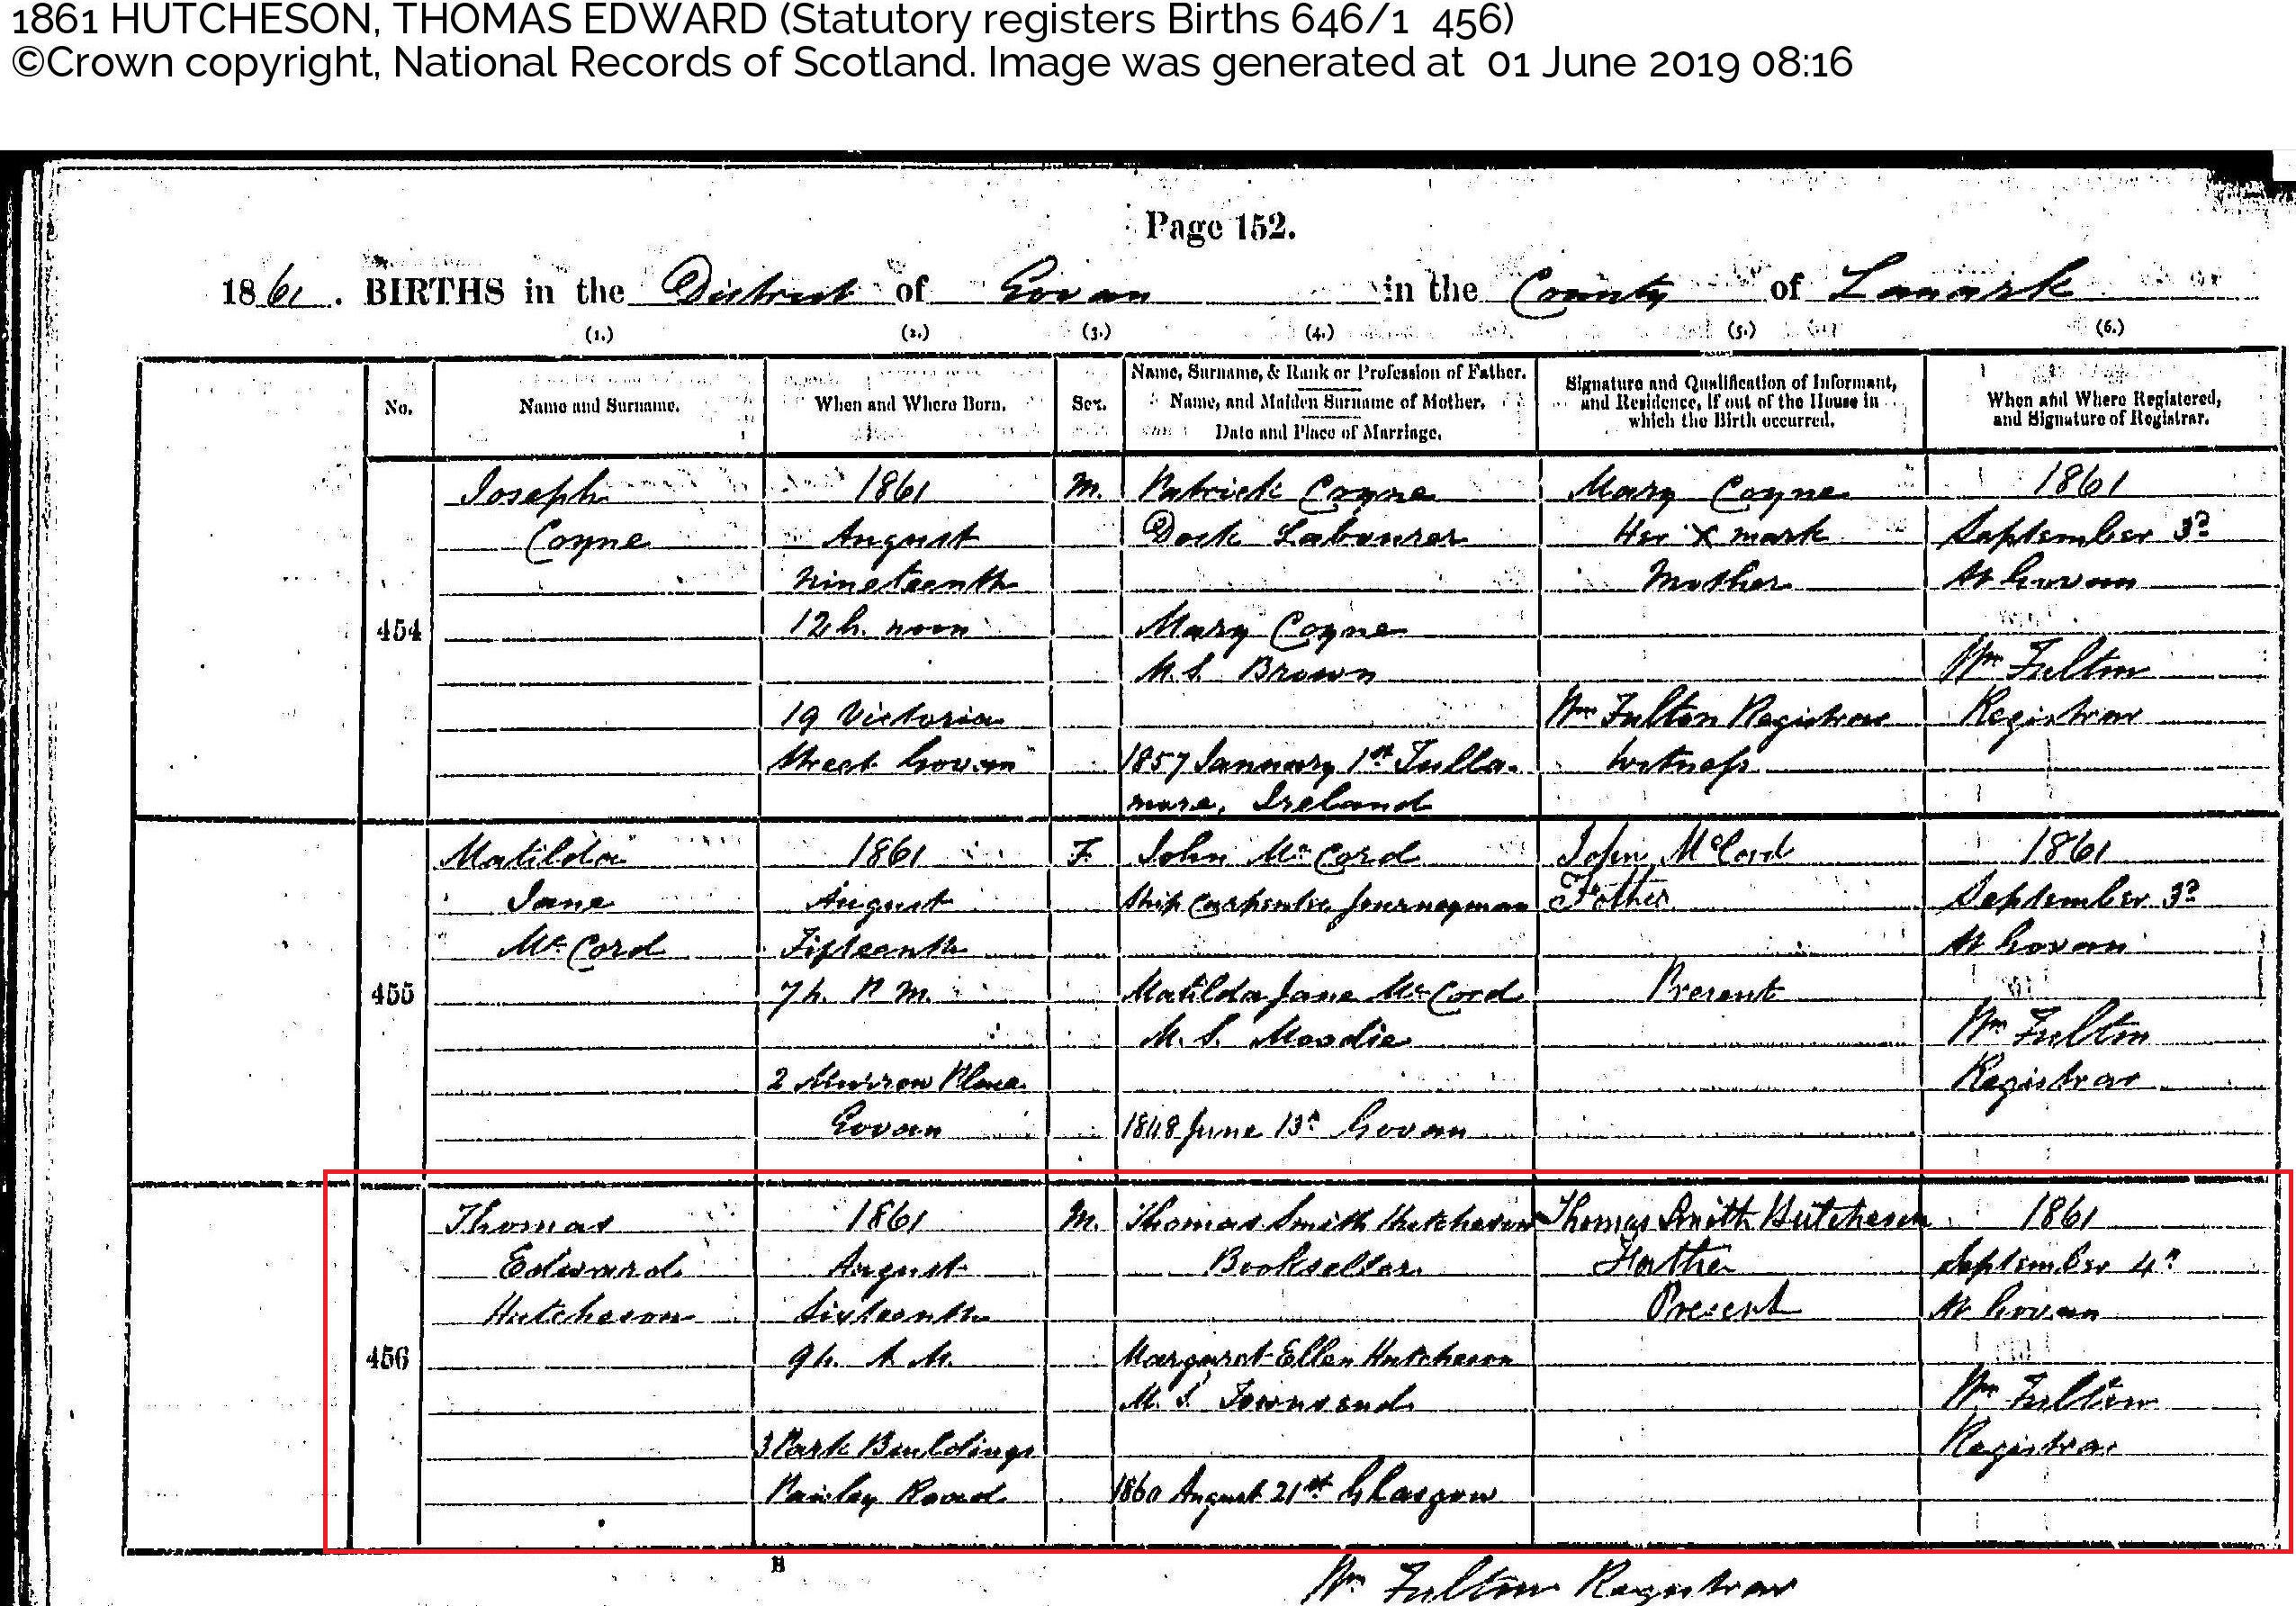 1861 HUTCHESON, THOMAS EDWARD (Statutory registers Births 646/1 456)
©Crown copyright, National Records of Scotland. Image was generated at 01 June 2019 08:16
Page 152.
1861. BIRTHS in the District of Govan in the County of Lanark
(1.) (2.) (3.) (4.) (5.) (6.)
No.
Name and Surname.
When and Where Born.
Sex.
Name, Surname, & Rank or Profession of Father.
Name, and Maiden Surname of Mother.
Date and Place of Marriage.
Signature and Qualification of Informant,
and Residence, if out of the House in
which the Birth occurred.
When and Where Registered,
and Signature of Registrar.
454
Joseph
Coyne
1861
August
Nineteenth
12h. noon
19 Victoria
Street Govan
M.
Patrick Coyne
Dock Labourer
Mary Coyne
M.S. Brown
1857 January 1st Tulla-
more, Ireland
Mary Coyne
Her X mark
Mother
Wm Fulton Registrar
Witness
1861
September 3d
At Govan
Wm Fulton
Registrar
455
Matilda
Jane
McCord
1861
August
Fifteenth
7h. P.M.
2 Place
Govan
F.
John McCord
Ship Carpenter Journeyman
Matilda Jane McCord
M.S. Moodie
1848 June 13th Govan
John McCord
Father
Present
1861
September 3d
At Govan
Wm Fulton
Registrar
456
Thomas
Edward
Hutcheson
1861
August
Sixteenth
9h. A.M.
3 Park Buildings
Paisley Road
M.
Thomas Smith Hutcheson
Bookseller
Margaret Ellen Hutcheson
M.S. Townsend
1860 August 21st Glasgow
Thomas Smith Hutcheson
Father
Present
1861
September 4th
At Govan
Wm Fulton
Registrar
H
Wm Fulton Registrar